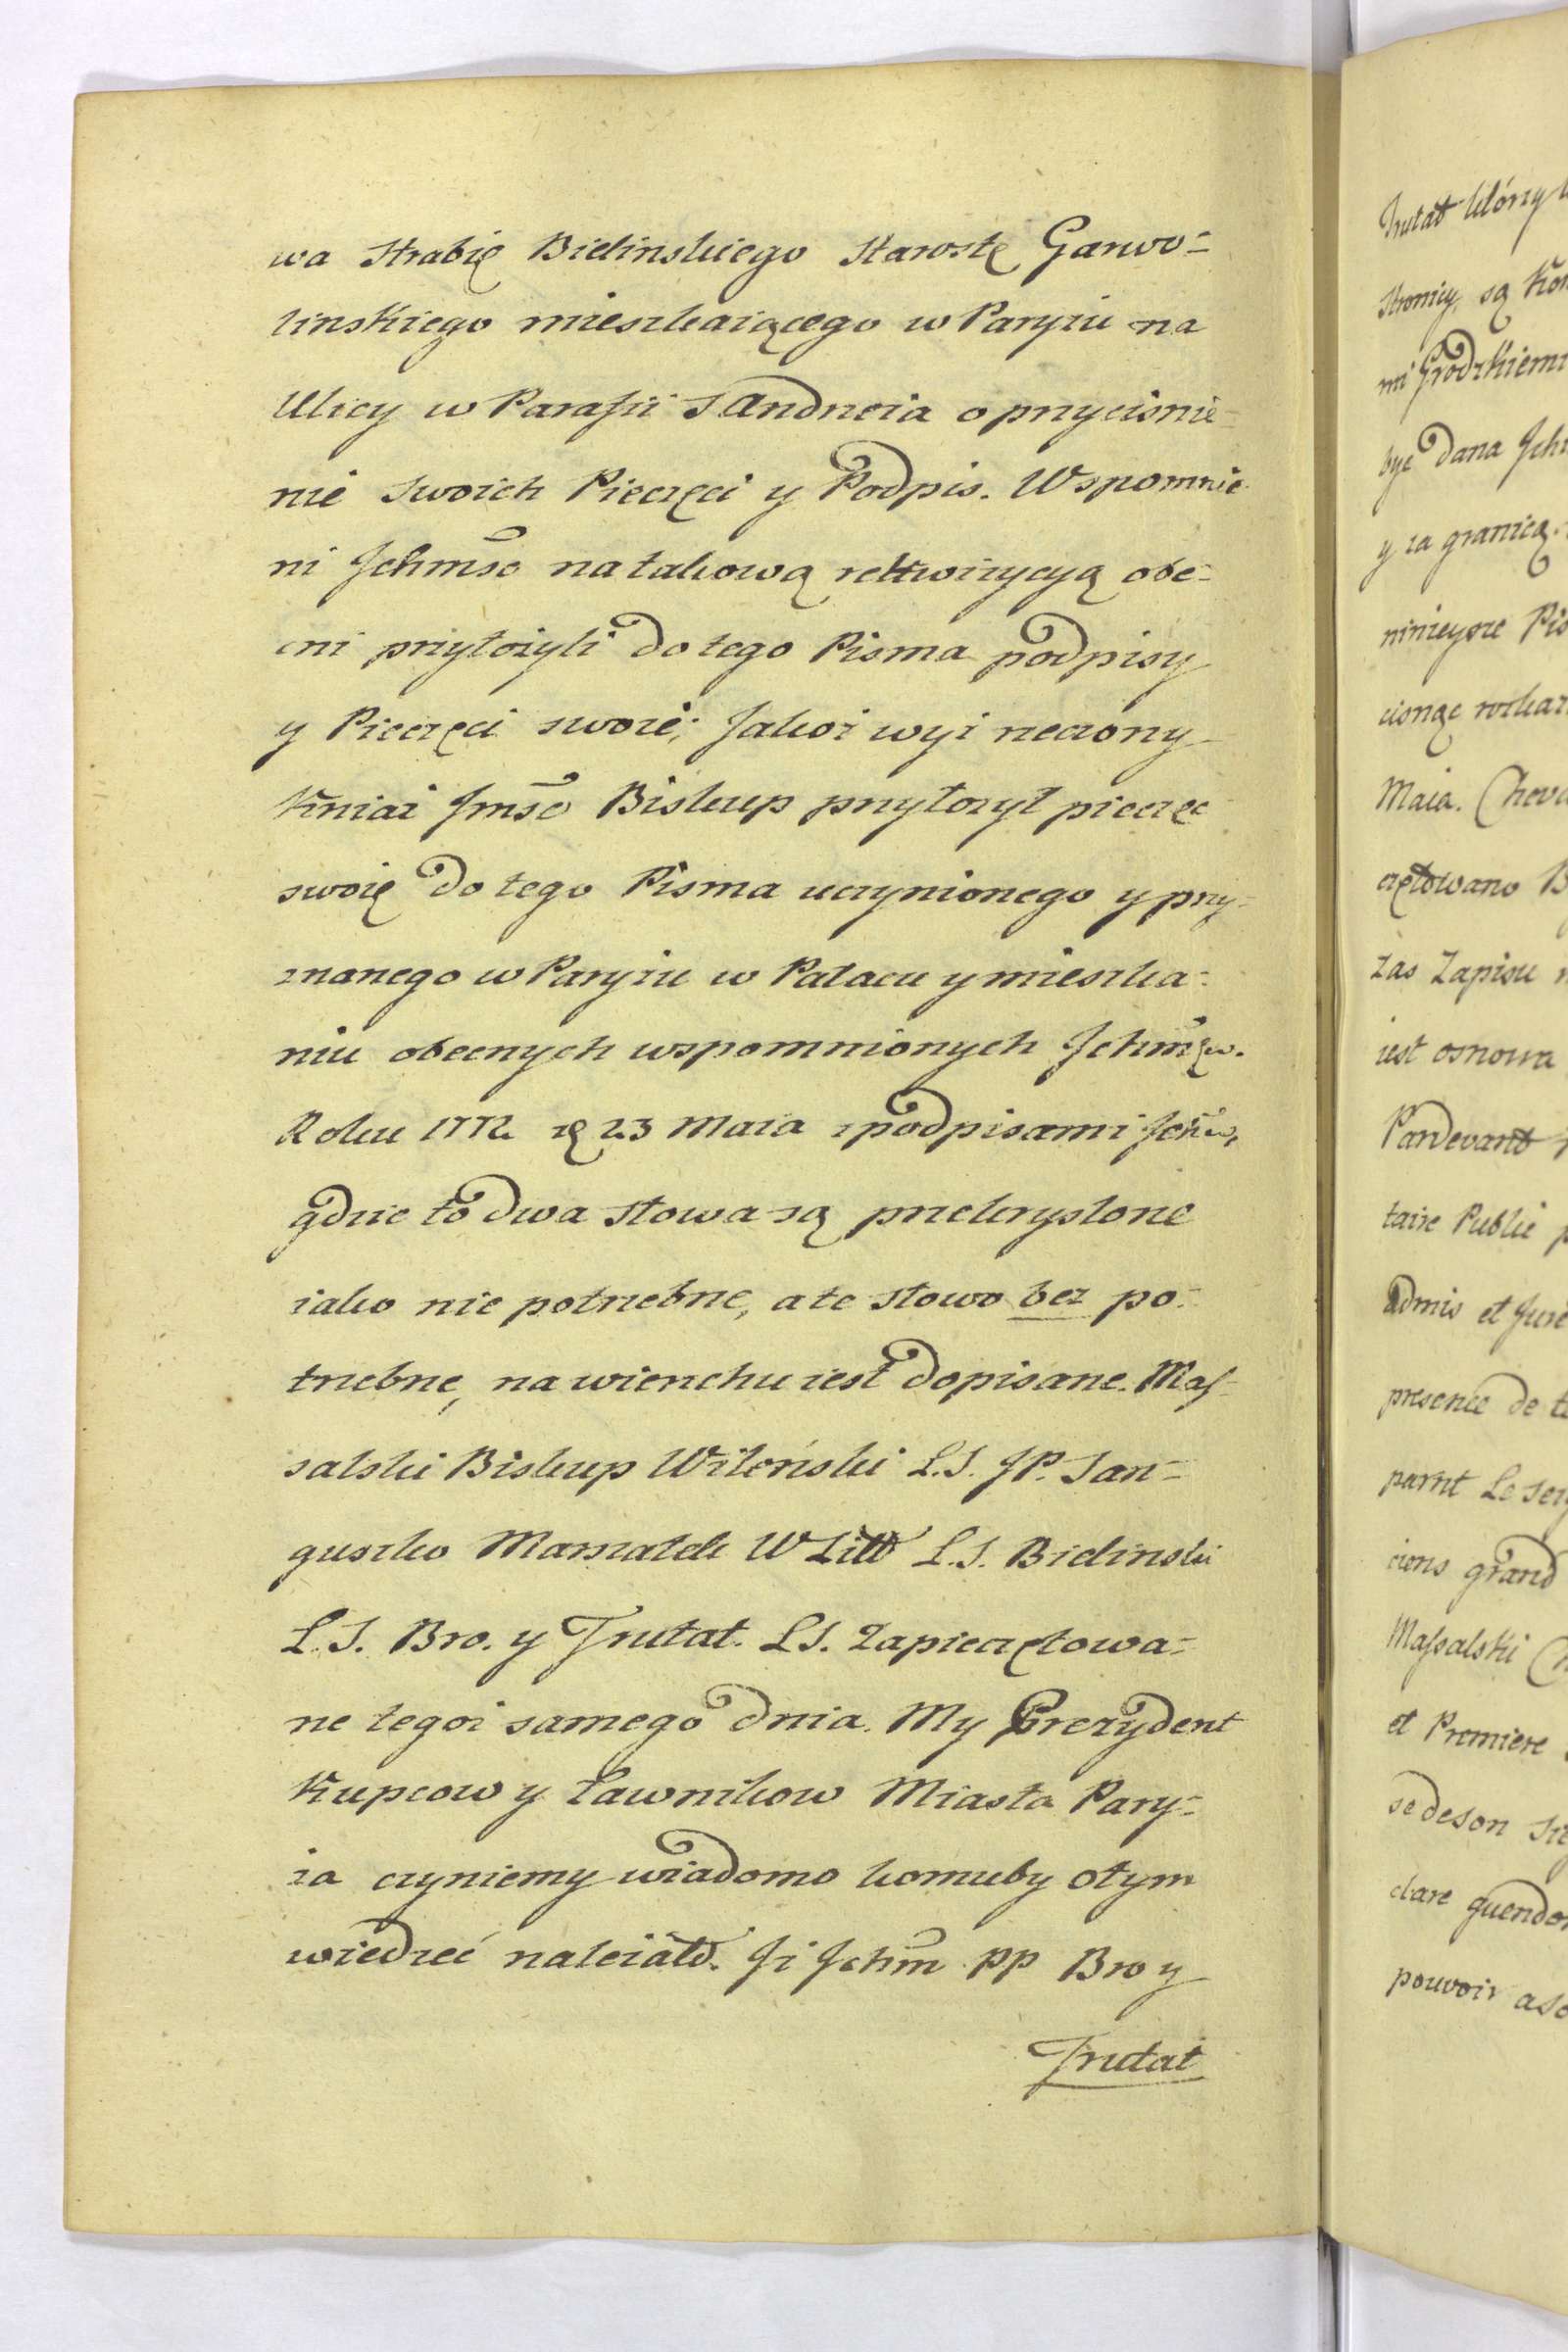 wa Hrabię Bielinskiego Starostę Garwo=
linskiego mieszkaiącego w Paryżu na
Ulicy w Parafii S Andrzeia o przycisnie=
nie swoich Pieczęci y Podpis. Wspomnie
ni Jchmśc na takową rekwizycyą obe=
cni przyłożyli do tego Pisma podpisy
y Pieczęci swoie; Jakoż wyż rzeczony
Xniaż Jmśc Biskup przyłożył pieczęc
swoię do tego Pisma uczynionego y przy=
znanego w Paryżu w Pałacu y mieszka=
niu obecnych wspomnionych Jchmśw.
Roku 1772 23 Maia z podpisami Jchśw,
gdzie to dwa słowa są przekryslone
iako nie potrzebne, a te słowo bez po=
trzebne, na wierzchu iest dopisane. Mas=
salski Biskup Wileński L.S. JP. San=
guszko Marszałek W Litt L.S. Bielinski
L.S. Bro. y Trutat. LS. Zapieczętowa=
ne tegoż samego dnia. My Prezydent
Kupcow y Ławnikow Miasta Pary=
ża czyniemy wiadomo komuby otym
wiedzieć należało. Jż Jchm PP Bro y
Trutat
Trutat ktòry
Stronicy, są
mi Grodzkiemi
być dana
y za granicą
ninieysze
cisnąc
Maia.
czętowano
Zas Zapisu
iest osnowa
Pardevant
taire Public
admis et Juré
presence de
parnt Le
ciens grand
Massalski
et Premiere
se de son
clare
pouvoir a